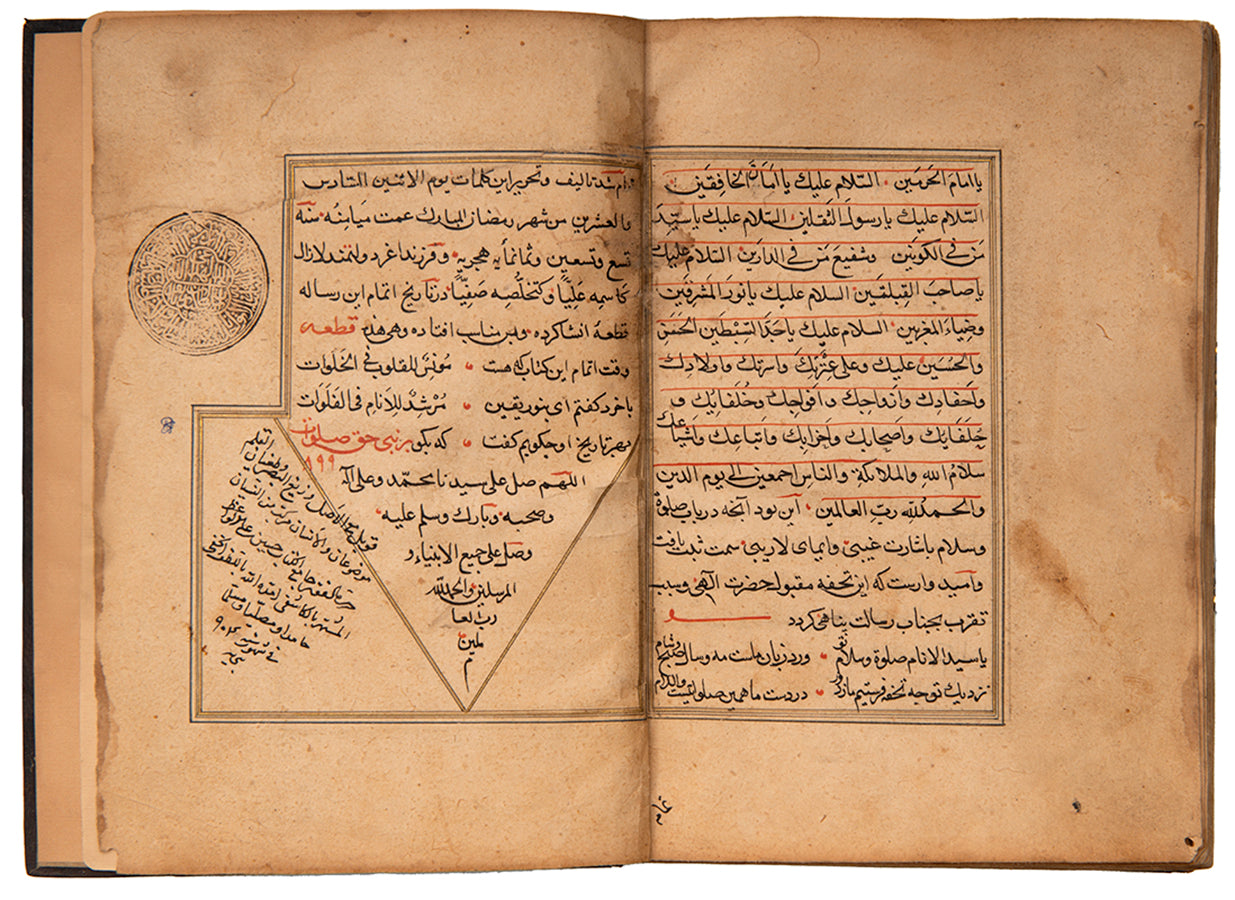 يا امامَ الحَرمَين السّلام عليك يا امَانَ الخافِقَين
السّلام عليك يا رسولَ الثقلين السّلام عليك يا سيّدَ
مَن في الكَونَين وشفيعَ مَن في الدارَين السّلام عليك
يا صاحبَ القبلتَين السلام عليك يا نورَ المشرقَين
وضياءَ المغربين السلام عليك يا جدّ السِّبطَين الحَسَن
والحُسَين عليك وعلى عِترتِك واسرتِك واولادِك
واحفادِك وازواجِك وافواجِك وخُلفائِك و
واصحابِك واحزابِك واتباعِك واشياعك
سلامُ الله والملائكةِ والناسِ اجمعين الى يوم الدين
والحمد لله ربّ العالمين این بود آنچه در باب صلوة
وسلام باشارت غیبی وایمای لاریبی سمت ثبت یافت
وامید وارست که این تحفه مقبول حضرت الهی وسبب
تقرب بجناب رسالت پناهی کردد
یا سید الانام صلوة وسلام تو ورد زبان ماست مه وسال وصبح وشام
نزدیك تو چه تحفه فرستیم ما زدور در دست ما همین صلواتیست والسلام
شد تالیف وتحریر این کلمات یوم الاثنین السّادس
والعشرین من شهر رمضان المبارك عمت میامِنُه سنة
تسع وتسعین وثمانمایه هجریة وفرزند اغر
کاسمه عَلِیّاً وکتخلّصه صَفِیّاً در تاریخ اتمام این رساله
قطعهٔ انشا کرده وبس مناسب افتاده وهی هذه قطعه
وقت اتمام این کتاب که هست مُونِسُ القلوب فی الخَلوات
با خرد کفتم ای بنور یقین مُرشدٌ للأنام فی الفَلَوات
بهر تاریخ او چکویم کفت که بکو بر نبی حق صلوات
٨٩٩
اللهم صل على سيدنا محمّد وعلى آله
وصحبه وبارك وسلم عليه
وصل على جميع الانبياء و
المرسلين والحمد لله
رب العا
لمين
م
قوبل مع الاصل
حسين على الواعظ
المشتهر بالكاشفى
حامدا ومصلّيا ومسلما
فى شهور سنه